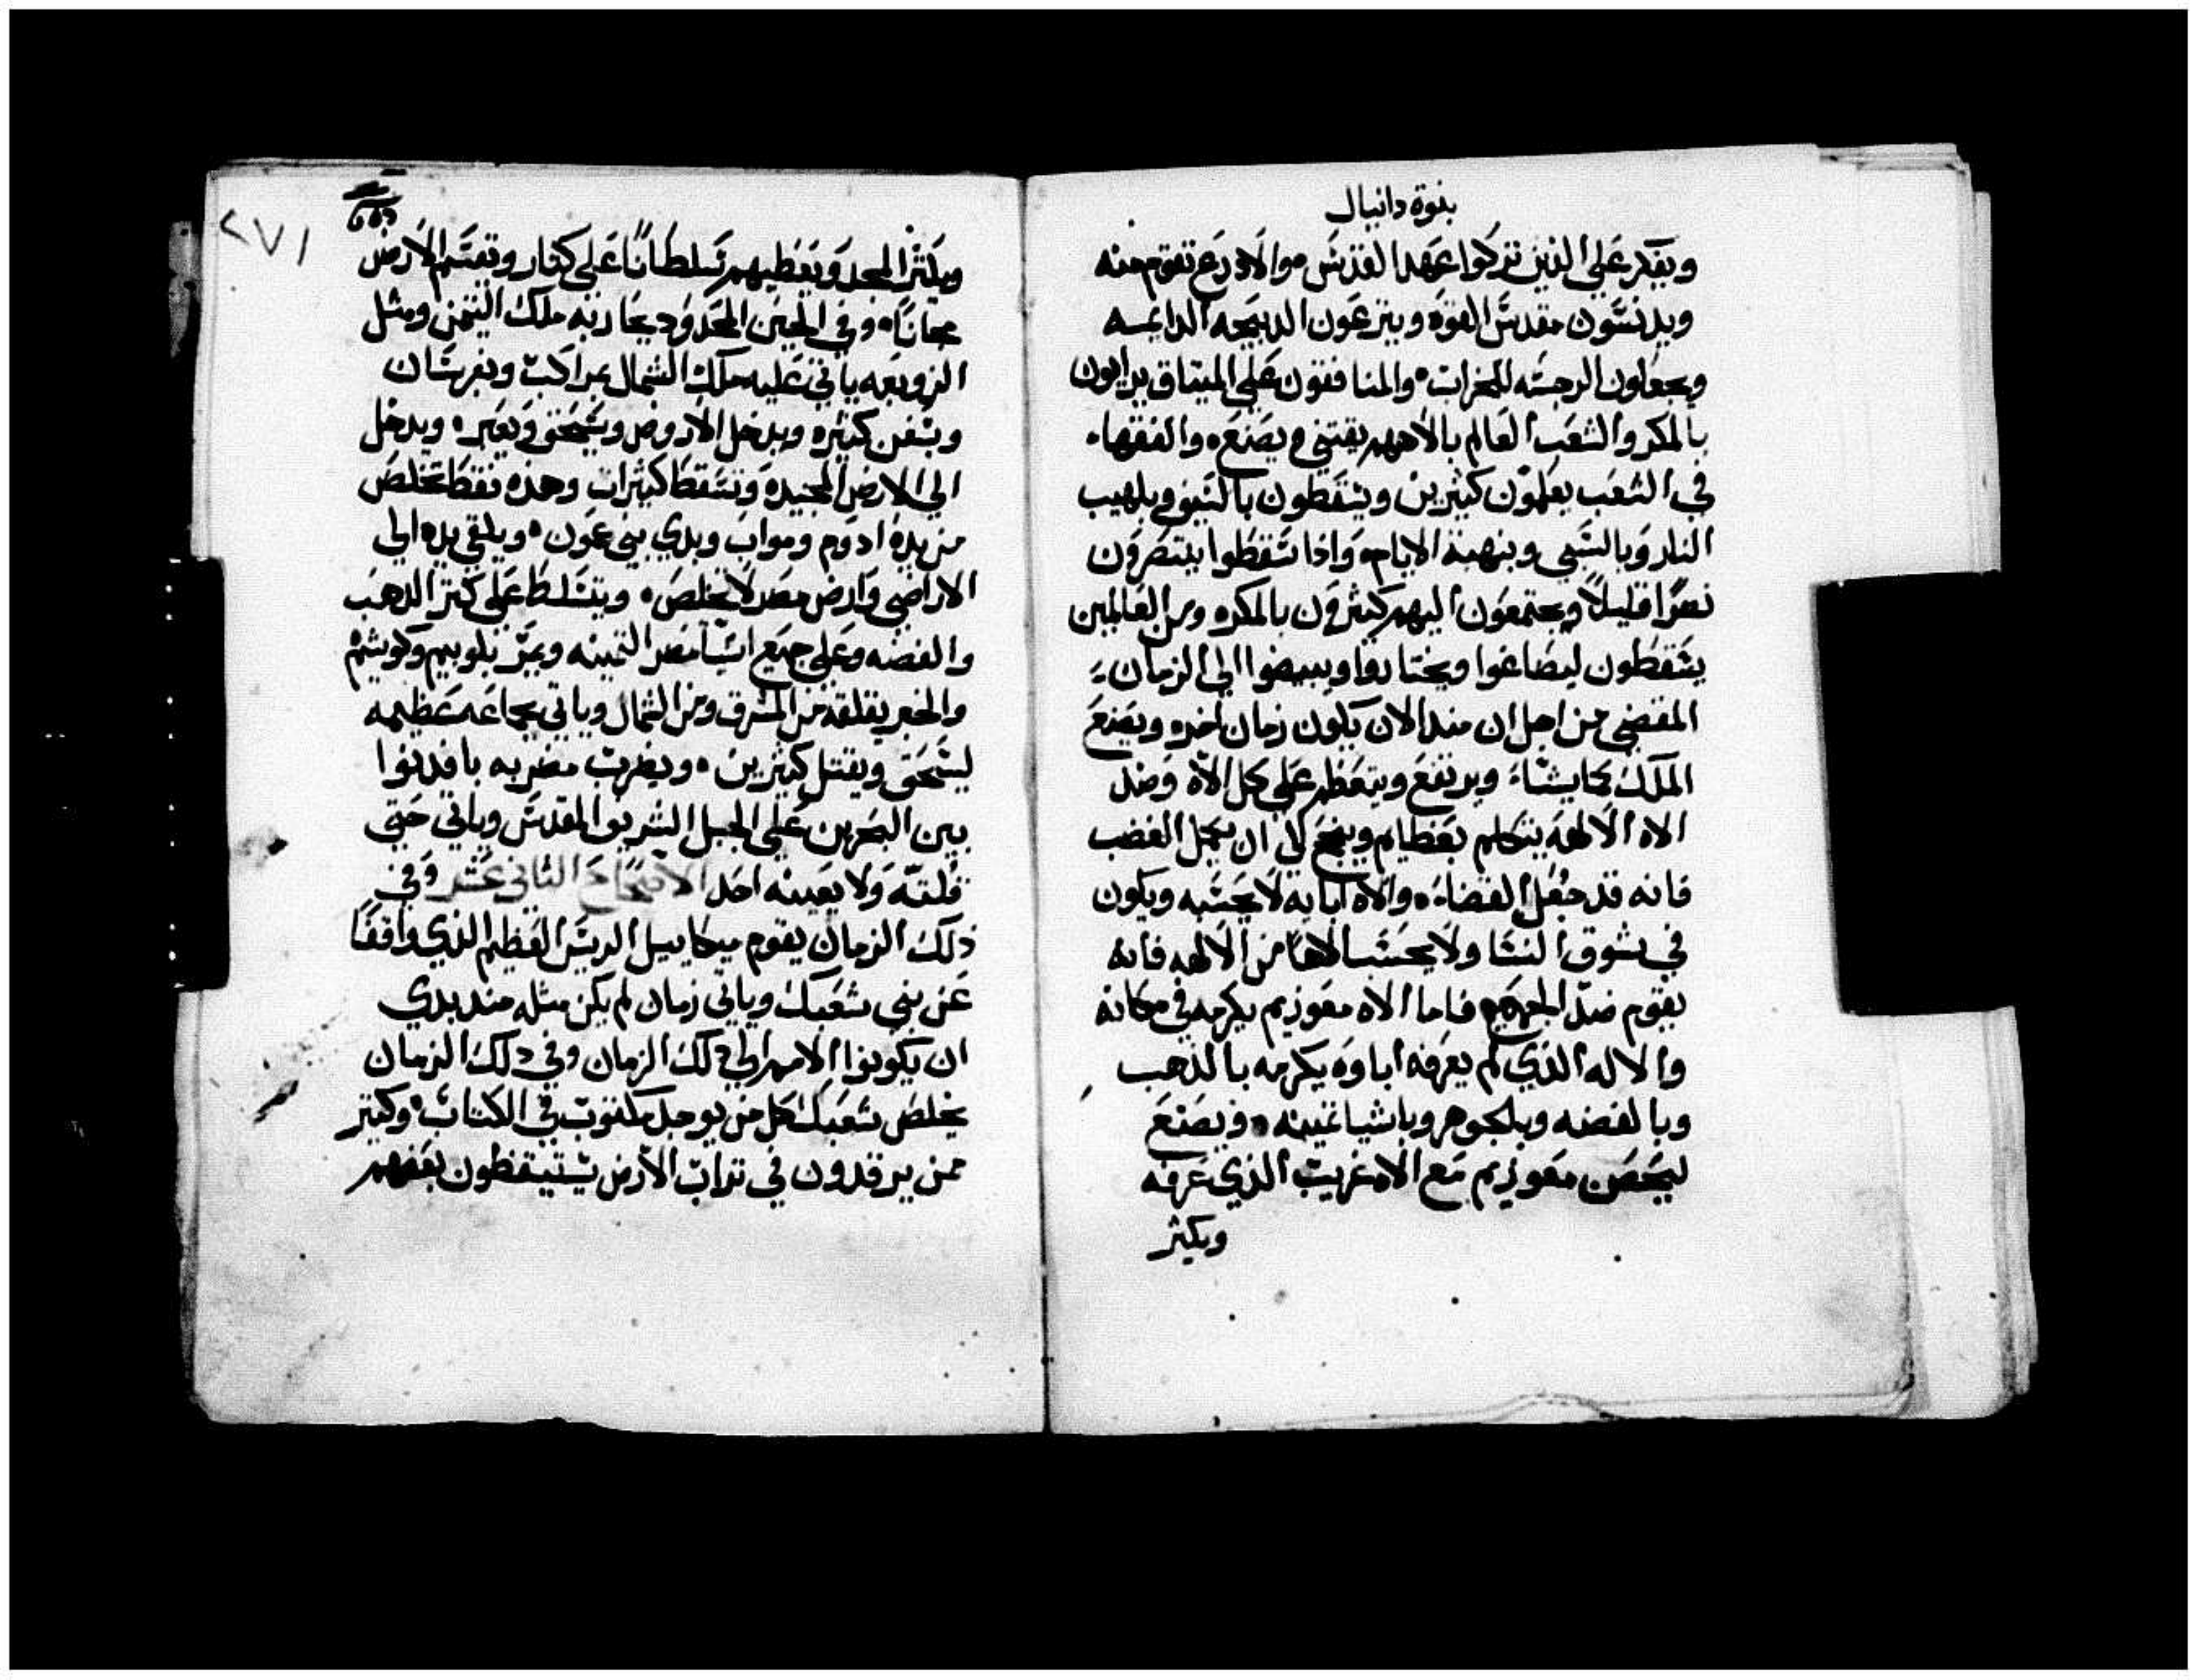 بنوة دانيال
ويفكر علي الذين تركوا عهد القدس والادرع تقوم منه
ويدنسون مقدس القوه وينزعون الدبيحه الدايمه
ويجعلون الرجسه للخراب والمنافقون علي الميتاق يرابون
بالمكر والشعب العالم بالاههم يقتني ويصنع والفقهاء
في الشعب يعلمون كثيرين ويسقطون بالسيف وبلهيب
النار وبالسبي وبنهبة الايام واذا سقطوا ينتصرون
نصرًا قليلاً ويجتمعون اليهم كثيرون بالمكر ومن العالمين
يسقطون ليصاغوا ويختاروا ويبيضوا الي الزمان
المقضي من اجل ان مند الان يكون زمان اخر ويصنع
الملك كما يشاء ويرتفع ويتعظم علي كل الاه وضد
الاه الالهه يتكلم بعظايم وينجح الي ان يكمل الغضب
فانه قد جعل القضاء والاه ابايه لا يحسبه ويكون
في شوق النسا ولا يحسب الاهًا من الالهه فانه
يقوم ضد الجميع فاما الاه معوذيم يكرمه في مكانه
والاله الذي لم يعرفه اباوه يكرمه بالذهب
وبالفضه وبالجوهر وباشيا تمينه ويصنع
ليحصن معوذيم مع الاه غريب الذي عرفه
ويكثر
٢٧١
ويكثر المجد ويعطيهم سلطانًا علي كثار ويقسم الارض
مجانًا وفي الحين المحدود يحاربه ملك التيمن ومثل
الزوبعه ياتي عليه ملك الشمال بمراكب وبفرسان
وبسفن كثيره ويدخل الاروض ويسحق ويعبر ويدخل
الي الارض المجيده وتسقط كثيرات وهذه فقط تخلص
من يده ادوم ومواب وبدي بني عمون ويلقي يده الي
الاراضي وارض مصر لا تخلص ويتسلط علي كنز الدهب
والفضه وعلي جميع اشيا مصر التمينه ويمر بلوبيم وكوشيم
والخبر يقلقه من المشرق ومن الشمال وياتي بجماعه عظيمه
ليسحق ويقتل كثيرين ويضرب مضربه بافدنوا
بين البحرين علي الجبل الشريف المقدس وياتي حتي
قلته ولا يعينه احد الاصحاح الثاني عشر وفي
ذلك الزمان يقوم ميكاييل الريس العظيم الذي واقفًا
عن بني شعبك وياتي زمان لم يكن مثله مند بدي
ان يكونوا الامم الي دلك الزمان وفي دلك الزمان
يخلص شعبك كل من يوجد مكتوب في الكتاب وكثير
ممن يرقدون في تراب الارض يستيقظون بعضهم